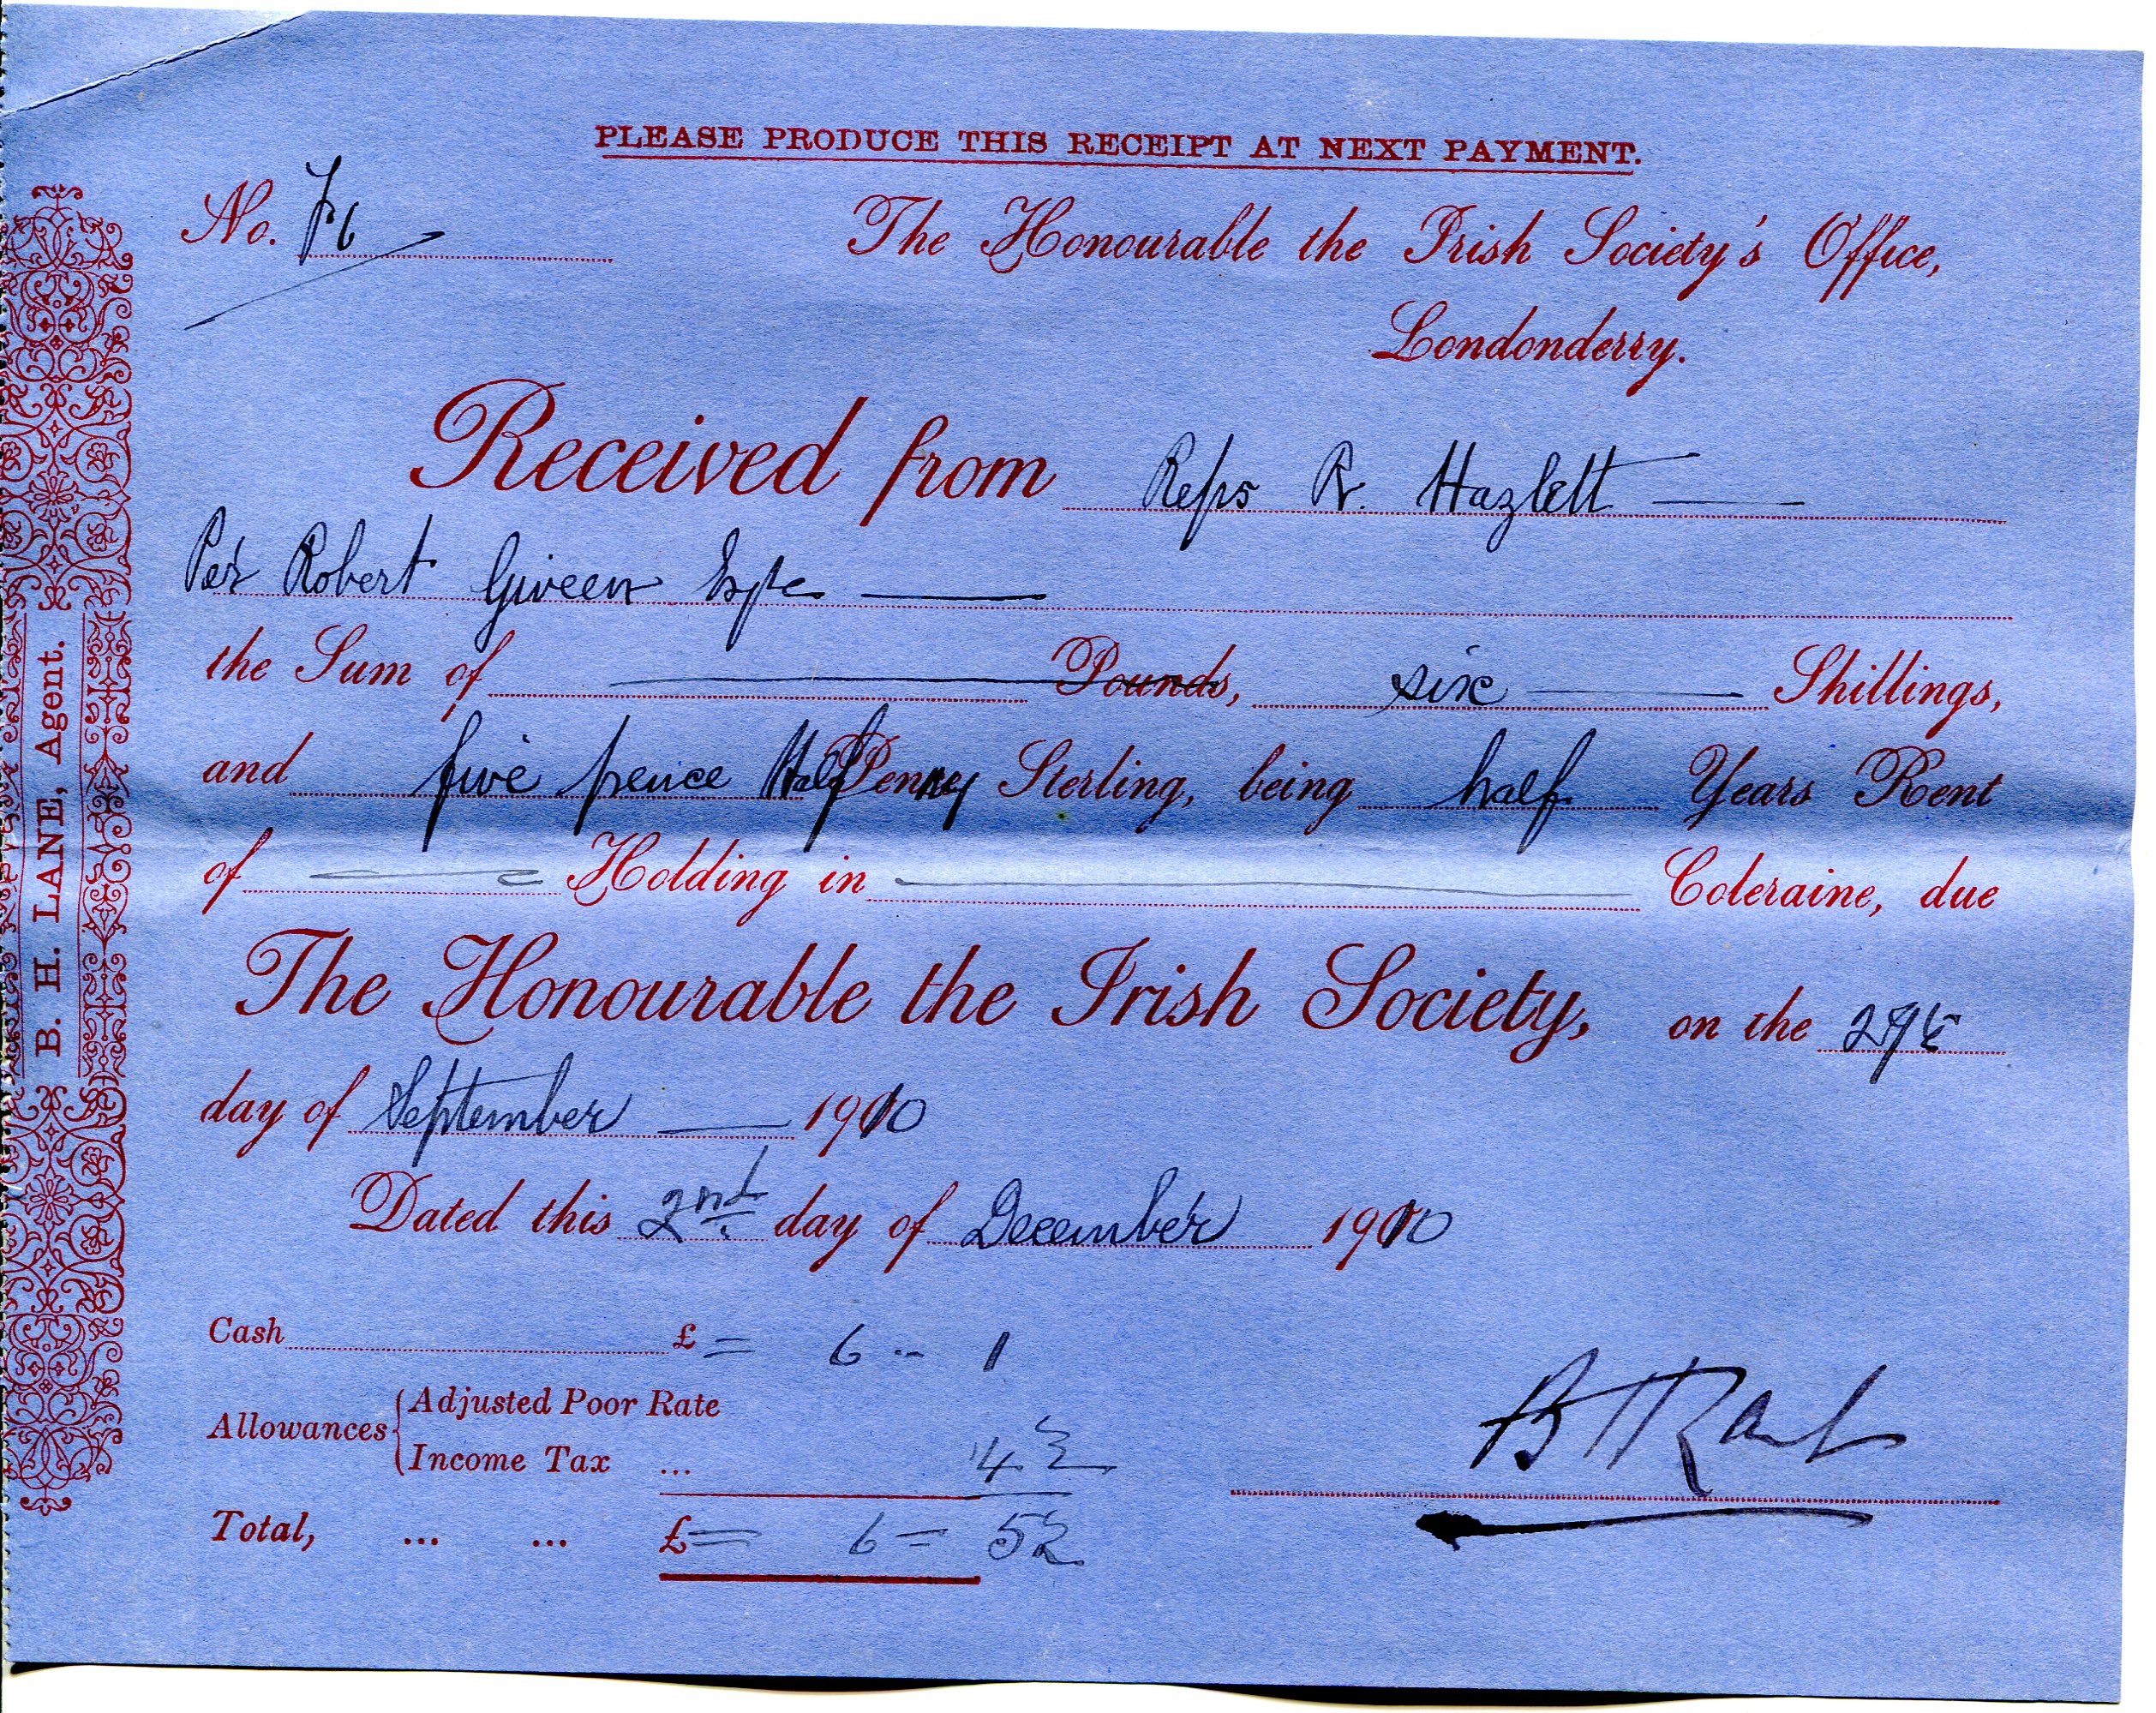 PLEASE PRODUCE THIS RECEIPT AT NEXT PAYMENT.
No. 76
The Honourable the Irish Society's Office,
Londonderry.
Received from Reps R. Hazlett
Per Robert Giveen Esqre
the Sum of Pounds, six Shillings,
and five pence Half Penny Sterling, being half Years Rent
of Holding in Coleraine, due
The Honourable the Irish Society, on the 29th
day of September 1910
Dated this 2nd day of December 1910
Cash £ = 6 .. 1
Allowances { Adjusted Poor Rate
Income Tax ... 4½
Total, ... ... £ = 6 = 5½
B. H. LANE, Agent.